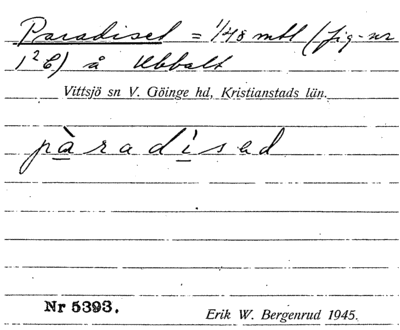 Paradiset = 1/48 mtl (jig-nr
1²C) å Ubbalt
Vittsjö sn V. Göinge hd, Kristianstads län.
pàradìsed
Nr 5393.
Erik W. Bergenrud 1945.